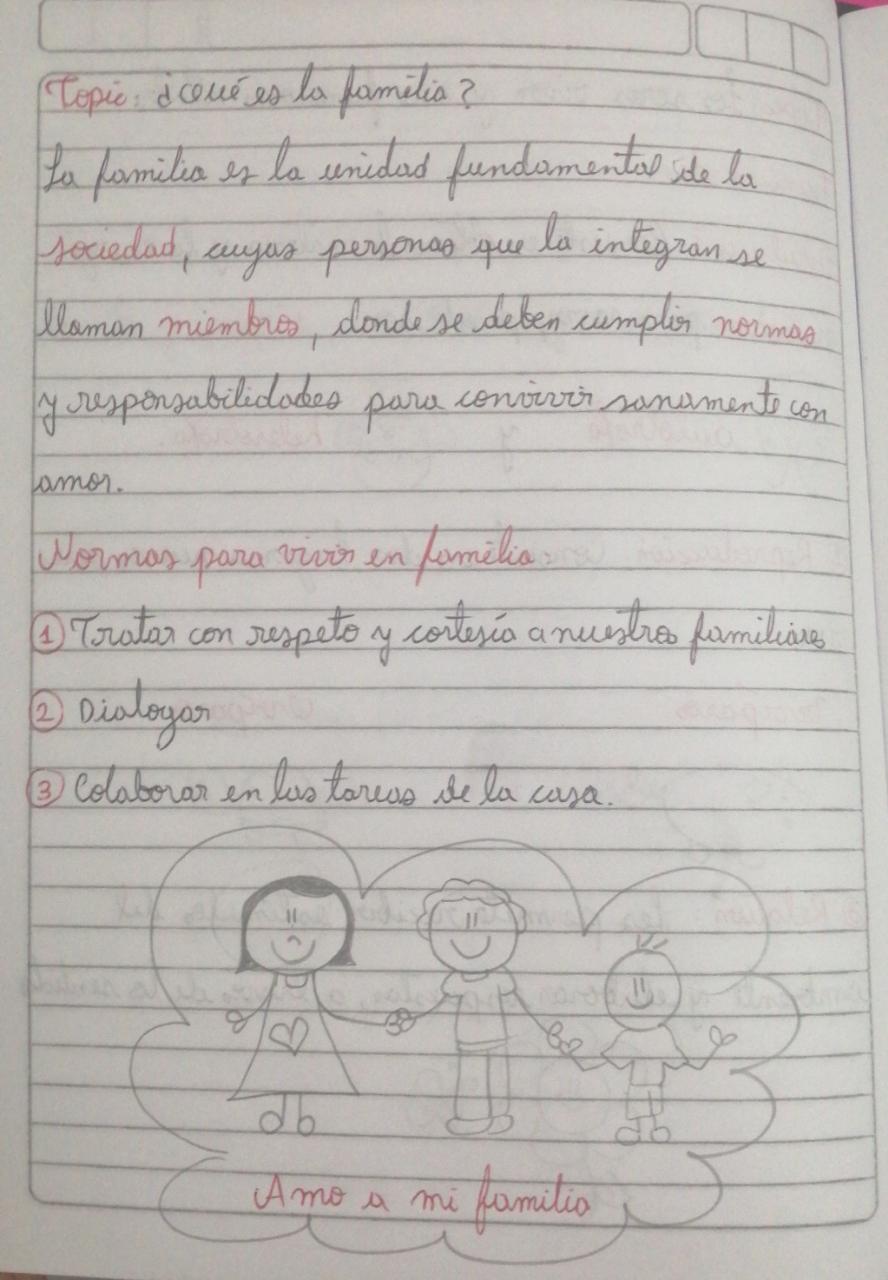 Topic: ¿Qué es la familia?
La familia es la unidad fundamental de la
sociedad, cuyas personas que la integran se
llaman miembros, donde se deben cumplir normas
y responsabilidades para convivir sanamente con
amor.
Normas para vivir en familia:
① Tratar con respeto y cortesía a nuestros familiares
② Dialogar
③ Colaborar en las tareas de la casa.
Amo a mi familia